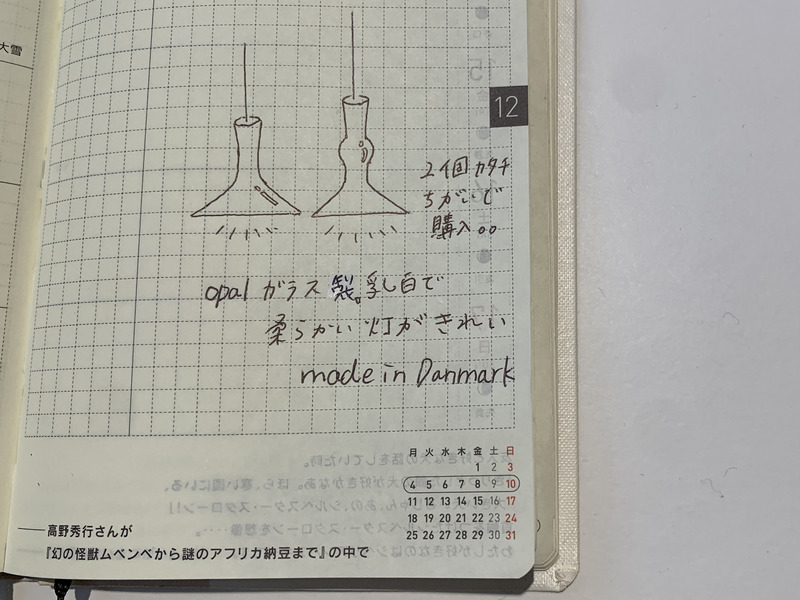 大雪
12
2個カタチ
ちがいで
購入。。
opal ガラス製。乳白で
柔らかい灯がきれい
made in Danmark
月 火 水 木 金 土 日
1 2 3
4 5 6 7 8 9 10
11 12 13 14 15 16 17
18 19 20 21 22 23 24
25 26 27 28 29 30 31
──高野秀行さんが
『幻の怪獣ムベンベから謎のアフリカ納豆まで』の中で